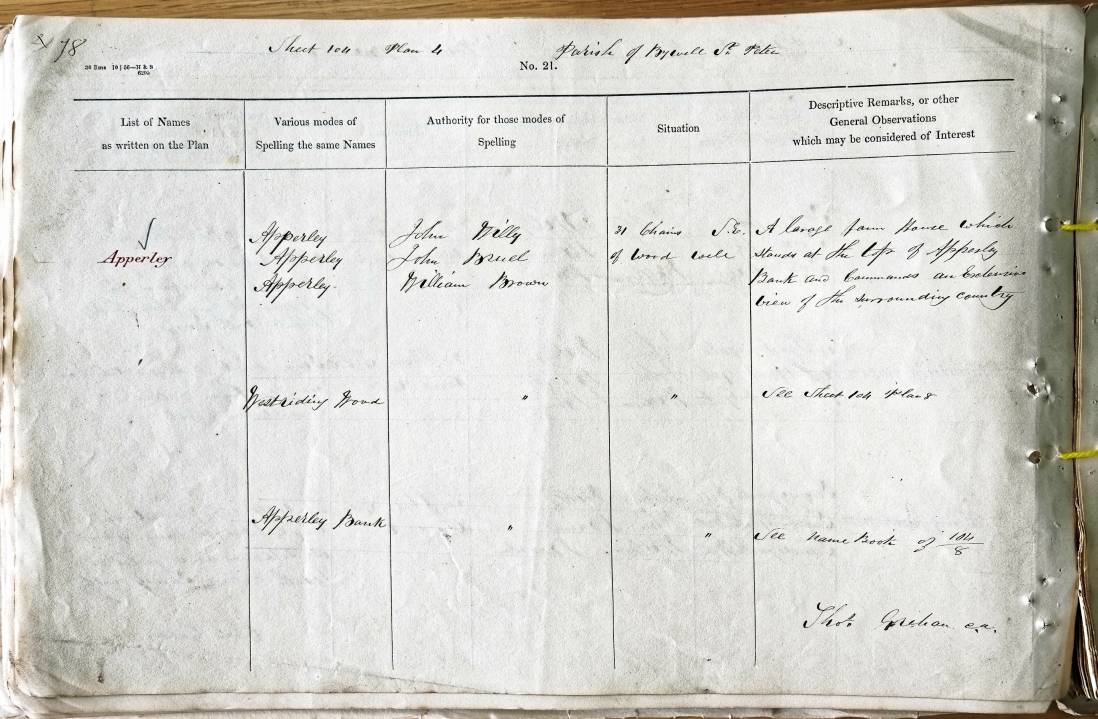 78
Sheet 104 Plan 4 Parish of Bywell St. Peter
No. 21.
List of Names
as written on the Plan
Various modes of
Spelling the same Names
Authority for those modes of
Spelling
Situation
Descriptive Remarks, or other
General Observations
which may be considered of Interest
Apperley
Apperley
Apperley
Apperley
John
John
William Brown
31 Chains S.E.
of Wood
A large farm House which
stands at the top of Apperley
Bank and Commands an Extensive
View of the surrounding country
Westriding Wood " " See Sheet 104 Plan 8
Apperley Bank " " See Name Book of 104/8
Thos. c.a.